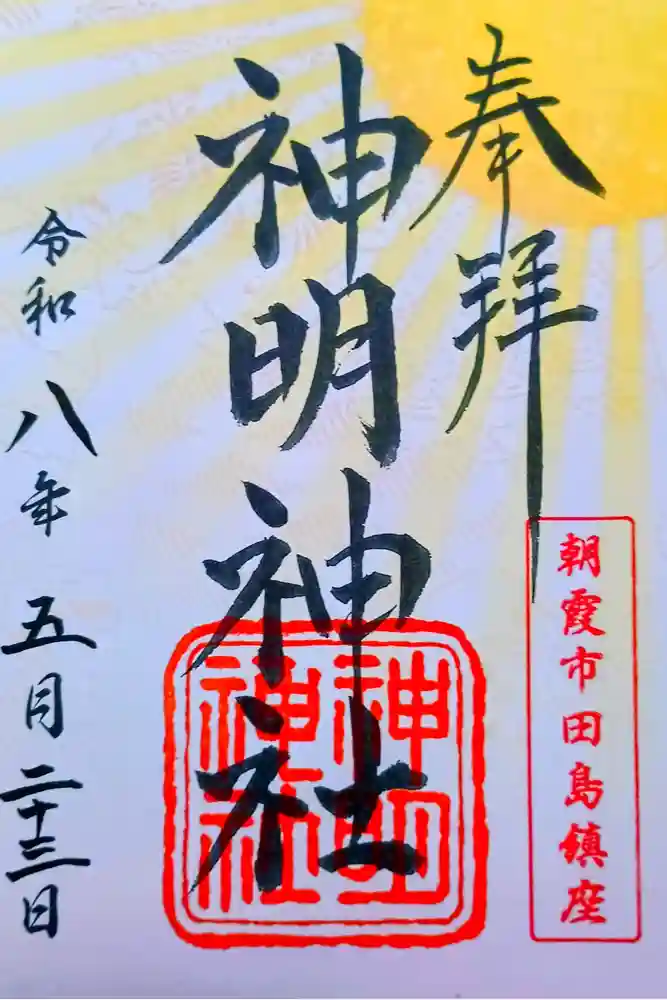 奉拝
朝霞市田島鎮座
神明神社
神明神社
令和八年五月二十三日